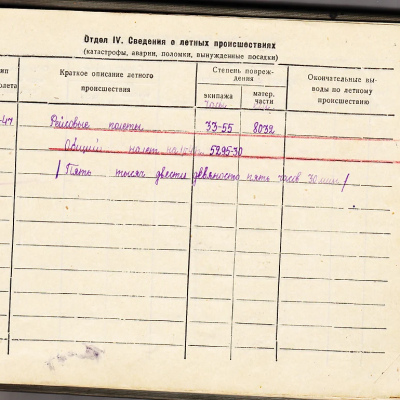 Отдел IV. Сведения о летных происшествиях
(катастрофы, аварии, поломки, вынужденные посадки)
ип
олета
Краткое описание летного
происшествия
Степень повреж-
дения
экипажа
матер.
части
Окончательные вы-
воды по летному
происшествию
часы
Рейсовые полеты 33-55 8032
Общий налет 5295-30
/Пять тысяч двести девяносто пять часов 30 мин/